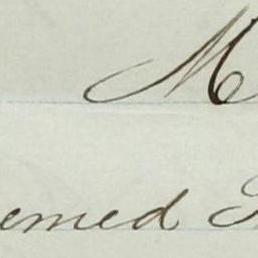 M
emed